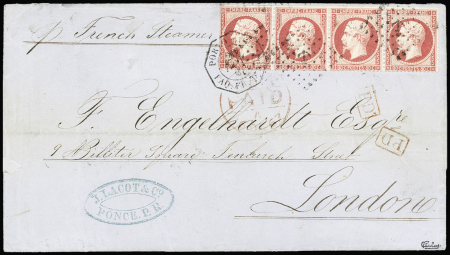 EMPIRE FRANC. EMPIRE FRANC. EMPIRE FRANC. EMPIRE FRANC.
p French Steamer
PAID
PD
PD
F. Engelhardt Esqre
9 Billiter Square Fenchurch Street
London
J. LACOT & Co
PONCE. P. R.